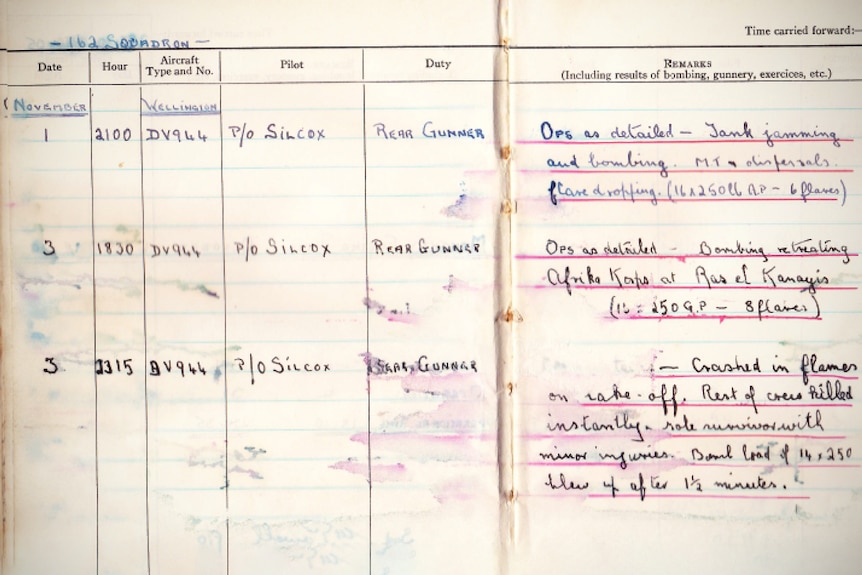 Time carried forward:—
— 162 SQUADRON —
Date Hour Aircraft Type and No. Pilot Duty REMARKS
(Including results of bombing, gunnery, exercices, etc.)
NOVEMBER WELLINGTON
1 2100 DV944 P/O SILCOX REAR GUNNER OPS as detailed — Tank jamming
and bombing. M.T & dispersals.
flare dropping. (16x250lb G.P — 6 flares)
3 1830 DV944 P/O SILCOX REAR GUNNER OPS as detailed — Bombing retreating
Afrika Korps at Ras el Kanayis
250 G.P — 8 flares)
3 2315 DV944 P/O SILCOX REAR GUNNER — Crashed in flames
on take-off. Rest of crew killed
instantly - sole survivor with
minor injuries. Bomb load of 14 x 250
blew up after 1½ minutes.